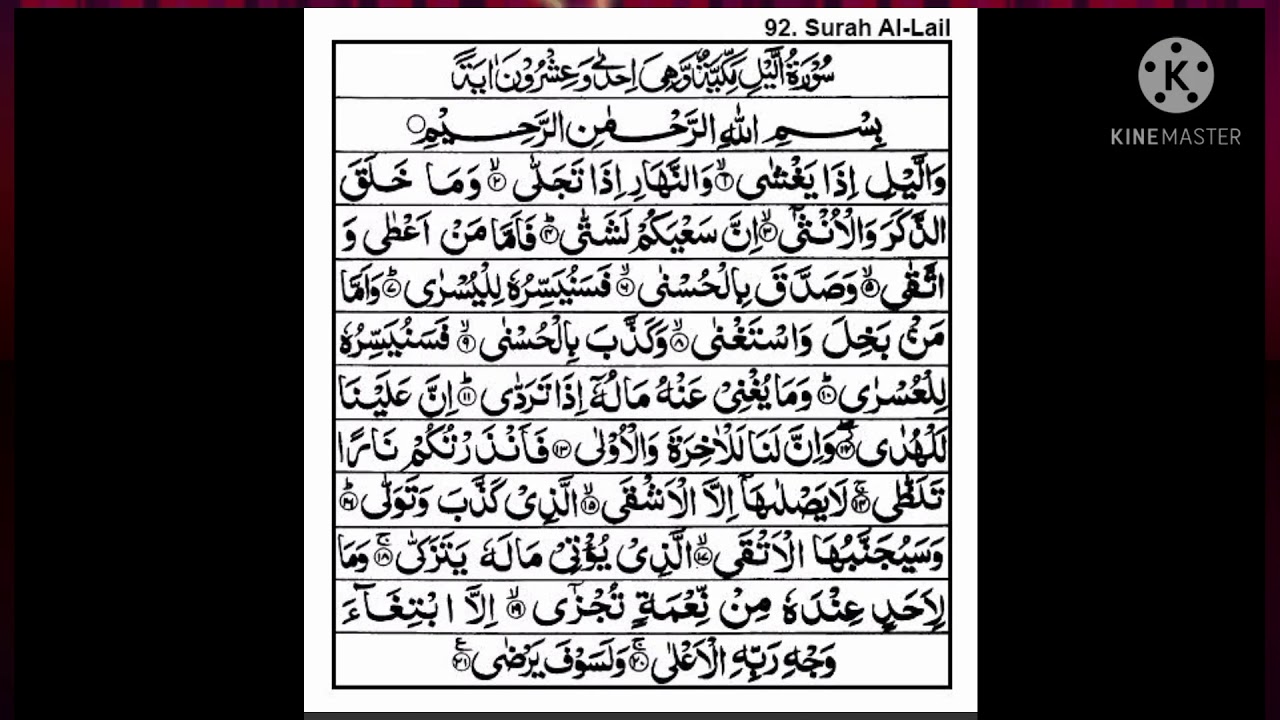 92. Surah Al-Lail
سُوْرَةُ الَّيْلِ مَكِّيَّةٌ وَّهِىَ اِحْدٰى وَعِشْرُوْنَ اٰيَةً
بِسْمِ اللهِ الرَّحْمٰنِ الرَّحِيْمِ
وَالَّيْلِ اِذَا يَغْشٰى ۙ﴿۱﴾ وَالنَّهَارِ اِذَا تَجَلّٰى ۙ﴿۲﴾ وَمَا خَلَقَ
الذَّكَرَ وَالْاُنْثٰٓى ۙ﴿۳﴾ اِنَّ سَعْيَكُمْ لَشَتّٰى ؕ﴿۴﴾ فَاَمَّا مَنْ اَعْطٰى وَ
اتَّقٰى ۙ﴿۵﴾ وَصَدَّقَ بِالْحُسْنٰى ۙ﴿۶﴾ فَسَنُيَسِّرُهٗ لِلْيُسْرٰى ؕ﴿۷﴾ وَاَمَّا
مَنْۢ بَخِلَ وَاسْتَغْنٰى ۙ﴿۸﴾ وَكَذَّبَ بِالْحُسْنٰى ۙ﴿۹﴾ فَسَنُيَسِّرُهٗ
لِلْعُسْرٰى ؕ﴿۱۰﴾ وَمَا يُغْنِىْ عَنْهُ مَالُهٗۤ اِذَا تَرَدّٰى ؕ﴿۱۱﴾ اِنَّ عَلَيْنَا
لَلْهُدٰى ۖ﴿۱۲﴾ وَاِنَّ لَنَا لَلْاٰخِرَةَ وَالْاُوْلٰى ﴿۱۳﴾ فَاَنْذَرْتُكُمْ نَارًا
تَلَظّٰى ۚ﴿۱۴﴾ لَا يَصْلٰىهَاۤ اِلَّا الْاَشْقَى ۙ﴿۱۵﴾ الَّذِىْ كَذَّبَ وَتَوَلّٰى ؕ﴿۱۶﴾
وَسَيُجَنَّبُهَا الْاَتْقَى ۙ﴿۱۷﴾ الَّذِىْ يُؤْتِىْ مَالَهٗ يَتَزَكّٰى ۚ﴿۱۸﴾ وَمَا
لِاَحَدٍ عِنْدَهٗ مِنْ نِّعْمَةٍ تُجْزٰٓى ۙ﴿۱۹﴾ اِلَّا ابْتِغَآءَ
وَجْهِ رَبِّهِ الْاَعْلٰى ۚ﴿۲۰﴾ وَلَسَوْفَ يَرْضٰى ﴿۲۱﴾ ع
K
KINEMASTER